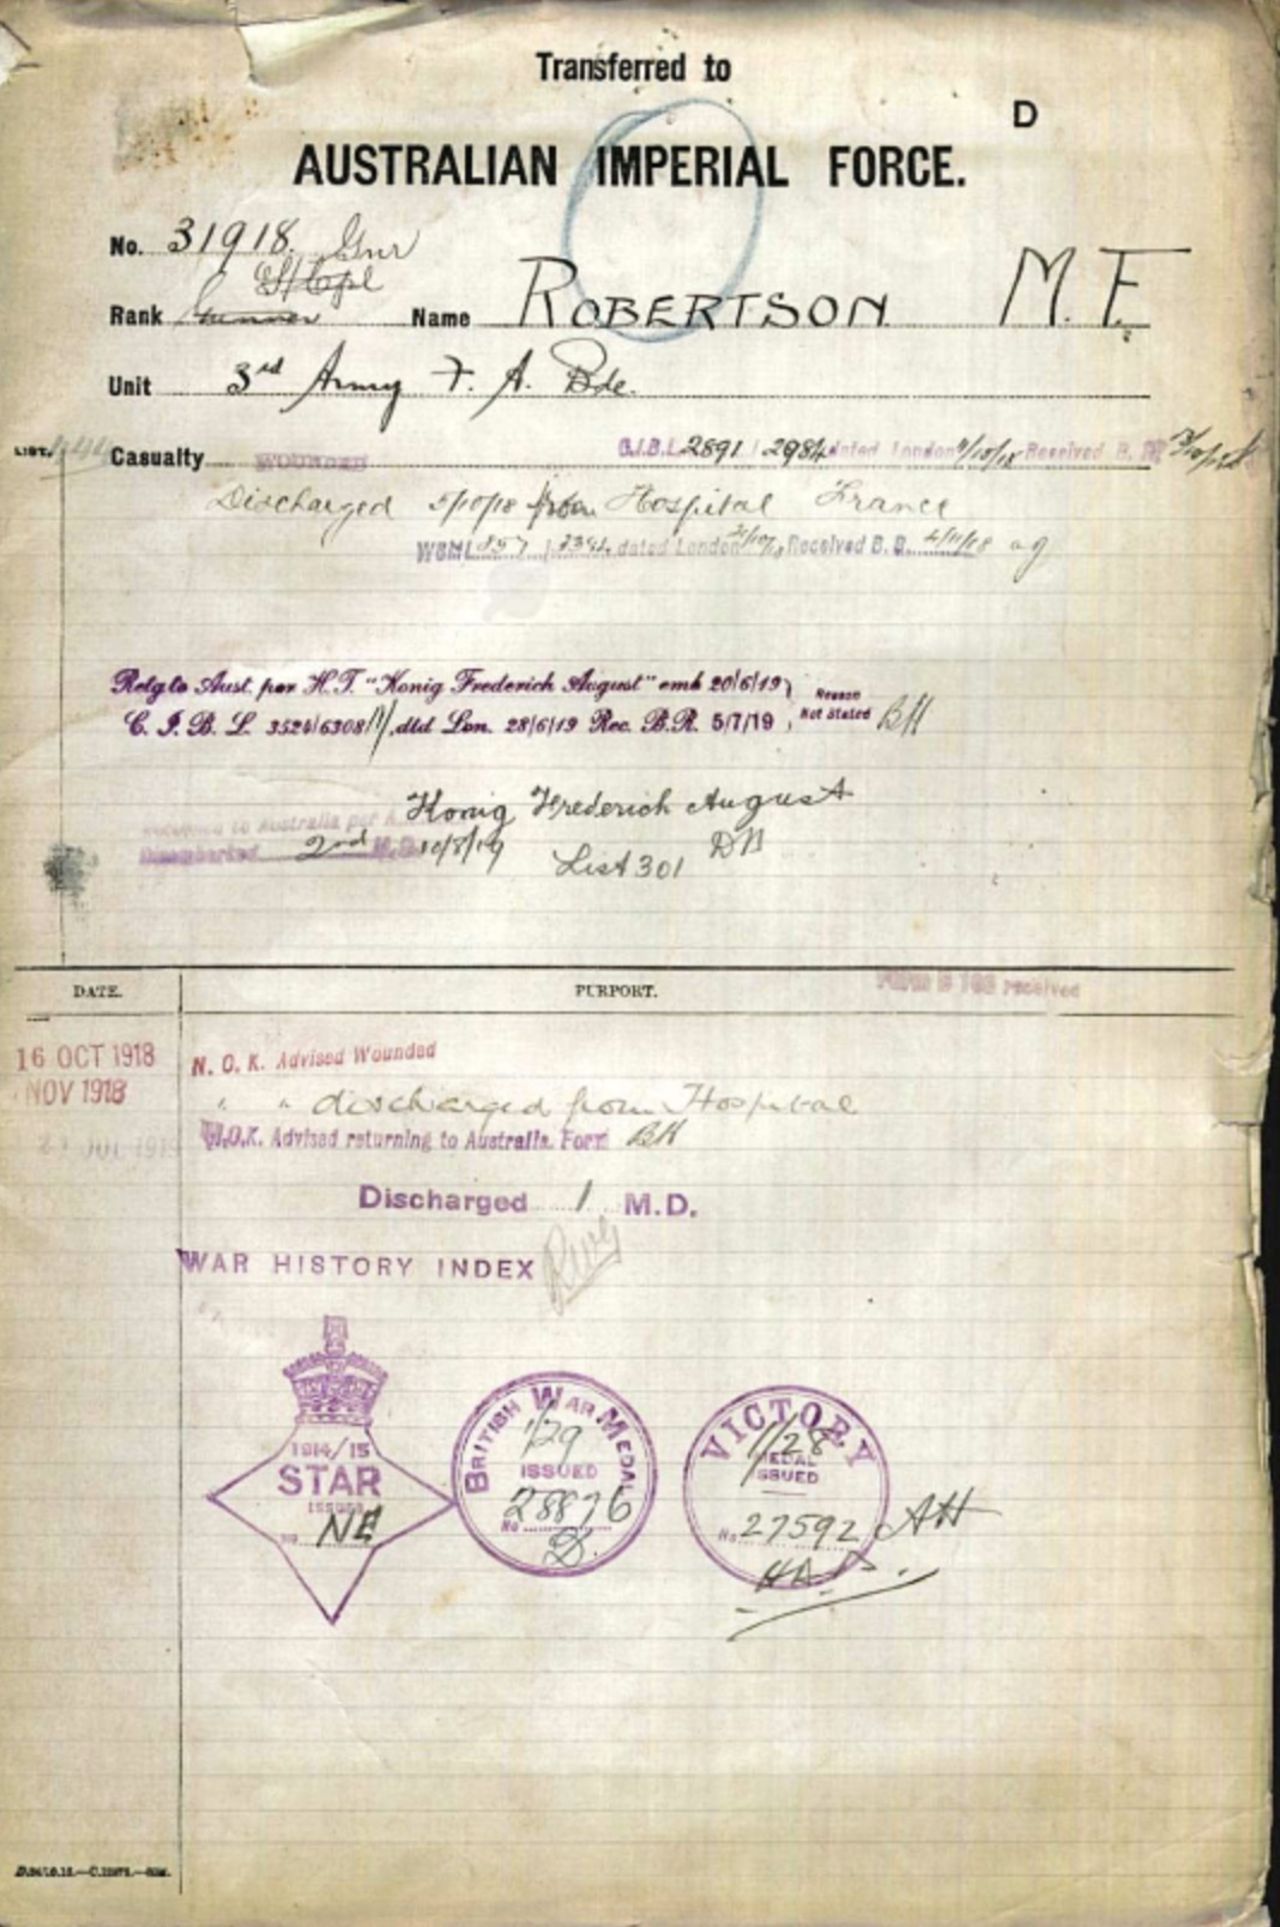 Transferred to
D
AUSTRALIAN IMPERIAL FORCE.
No. 31918. Gnr
S/Cpl
Rank Gunner Name ROBERTSON M. F.
Unit 3rd Army F. A. Bde.
LIST.
Casualty WOUNDED C.I.B.L. 2891 / 2984 dated London 9/10/18 Received B. R.
Discharged 5/10/18 from Hospital France
WSML 857 dated London Received B. R. 4/11/18 ag
Retg to Aust. per H.T. "Konig Frederich August" emb 20/6/19, Reason
C. I. B. L. 3524/6308 dtd Lon. 28/6/19 Rec. B.R. 5/7/19, Not Stated BH
Konig Frederich August
Returned to Australia per
Disembarked 2nd M.D. 10/8/19 DB
List 301
DATE. PURPORT. received
16 OCT 1918 N. O. K. Advised Wounded
NOV 1918 " " discharged from Hospital
N.O.K. Advised returning to Australia. Form BH
Discharged 1 M.D.
WAR HISTORY INDEX
1914/15
STAR
ISSUED
No. NE
BRITISH WAR MEDAL
1/29
ISSUED
No. 28876
D.
VICTORY
1/28
MEDAL
ISSUED
No. 27592 AH